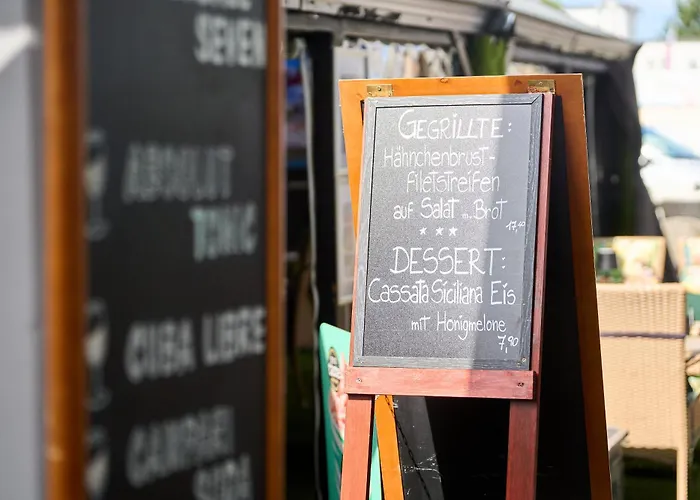 SEVEN
ABSOLUT
TONIC
CUBA LIBRE
CAMPARI
SODA
GEGRILLTE:
Hähnchenbrust-
filetstreifen
auf Salat m. Brot
17,40
***
DESSERT:
Cassata Siciliana Eis
mit Honigmelone
7,90